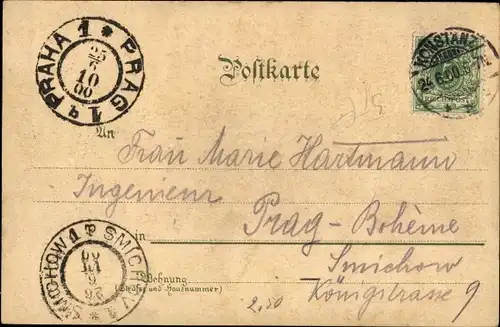 PRAHA 1 * PRAG 1
25
6
10
00
Postkarte
KONSTANZ
REICHSPOST
An
Frau Marie Hartmann
Ingenieur
in Prag-Bohème
SMICHOW 1 * SMICHOV 1
26
6
Wohnung
(Straße und Hausnummer)
Smichow
Königstrasse 9
2,50